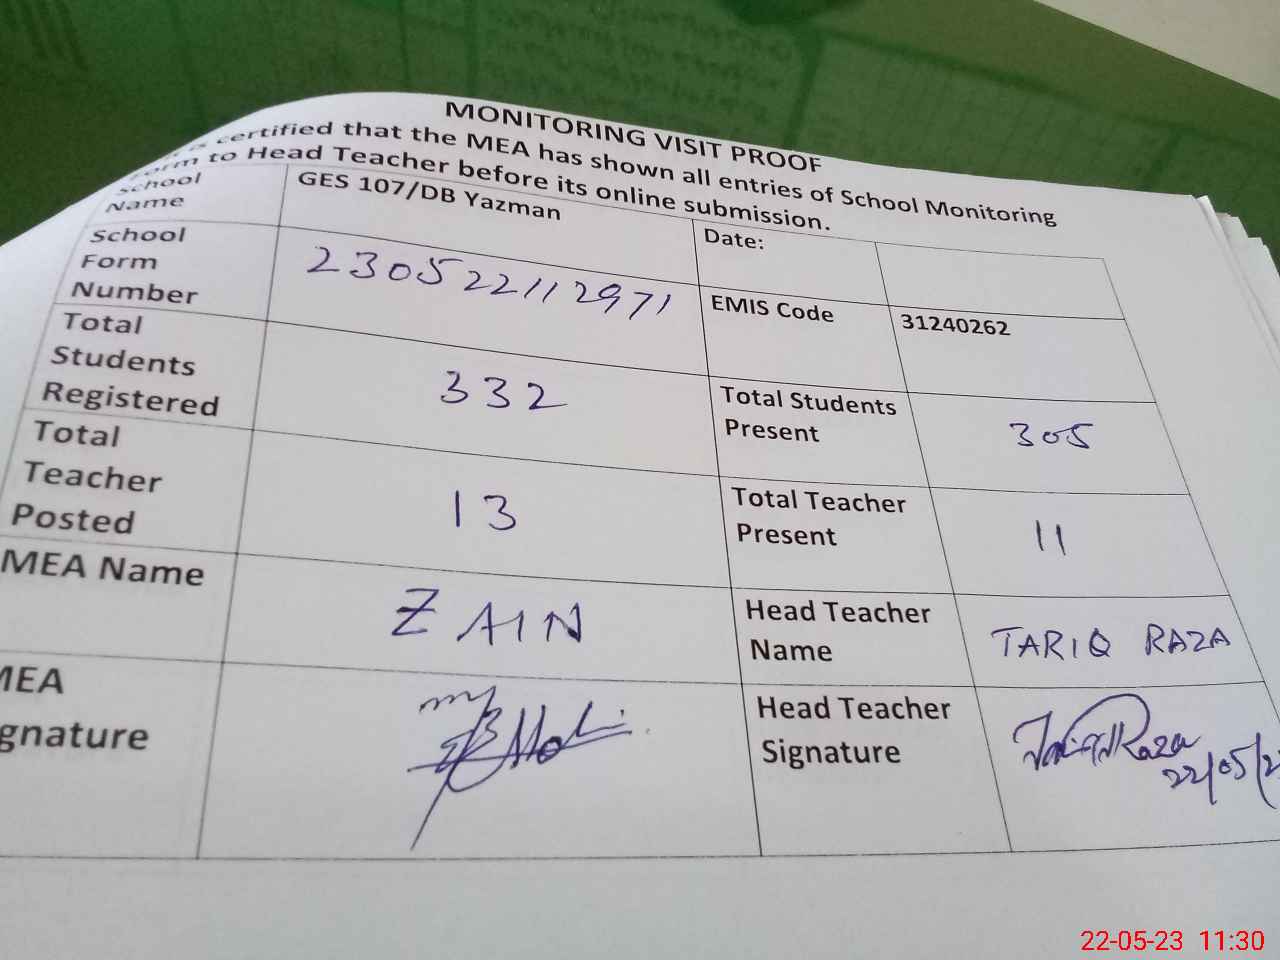 MONITORING VISIT PROOF
is certified that the MEA has shown all entries of School Monitoring
Form to Head Teacher before its online submission.
School Name GES 107/DB Yazman Date:
School Form Number 230522112971 EMIS Code 31240262
Total Students Registered 332 Total Students Present 305
Total Teacher Posted 13 Total Teacher Present 11
MEA Name ZAIN Head Teacher Name TARIQ RAZA
MEA gnature Head Teacher Signature Tariq Raza
22/05/2
22-05-23 11:30